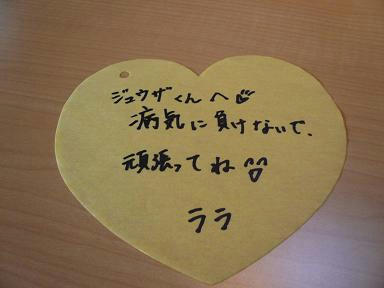 ジュウザくんへ
病気に負けないで、
頑張ってね!!
ララ